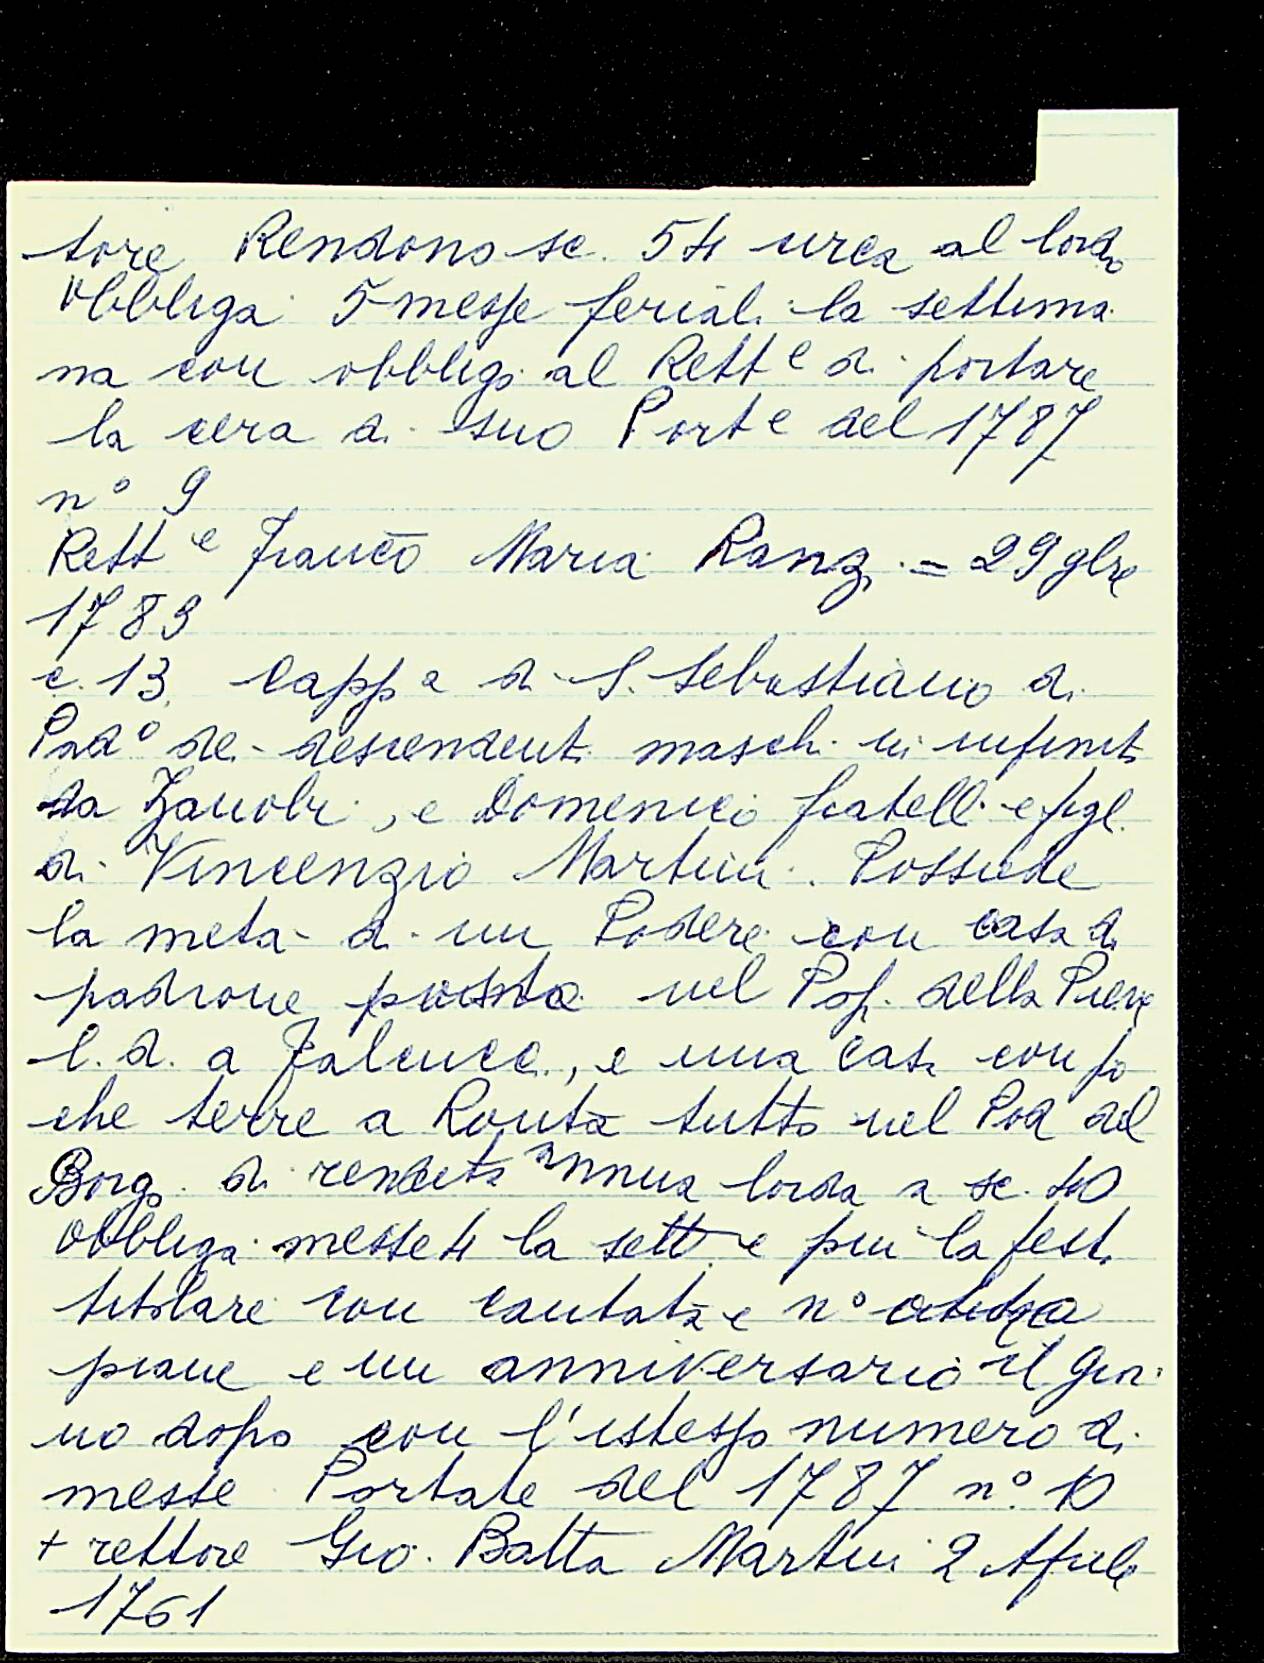 tore Rendono sc. 54 circa al lordo
Obbliga 5 messe feriali la settima
na con obbligo al Rett e di portare
la cera di suo Port e del 1787
n° 9
Rett e Franco Maria Ranzi = 29 9bre
1783
c. 13 Capp a di S. Sebastiano di
Pad° dei descendenti maschi in infinit
da Zanobi, e Domenico fratelli e figl.
di Vincenzio Martini. Possiede
la metà di un Podere con casa di
padrone posta nel Pop. della Pieve
l. d. a Falcucci, e una casa con po
che terre a Ronta tutto nel Pod del
Borgo di rendita annua lorda a sc. 40
Obbliga messe 4 la sett e più la festa
titolare con cantata e n°
piane e un anniversario il gior
no dopo con l'istesso numero di
messe Portate del 1787 n° 10
+ rettore Gio. Batta Martini 2 Aprile
1761